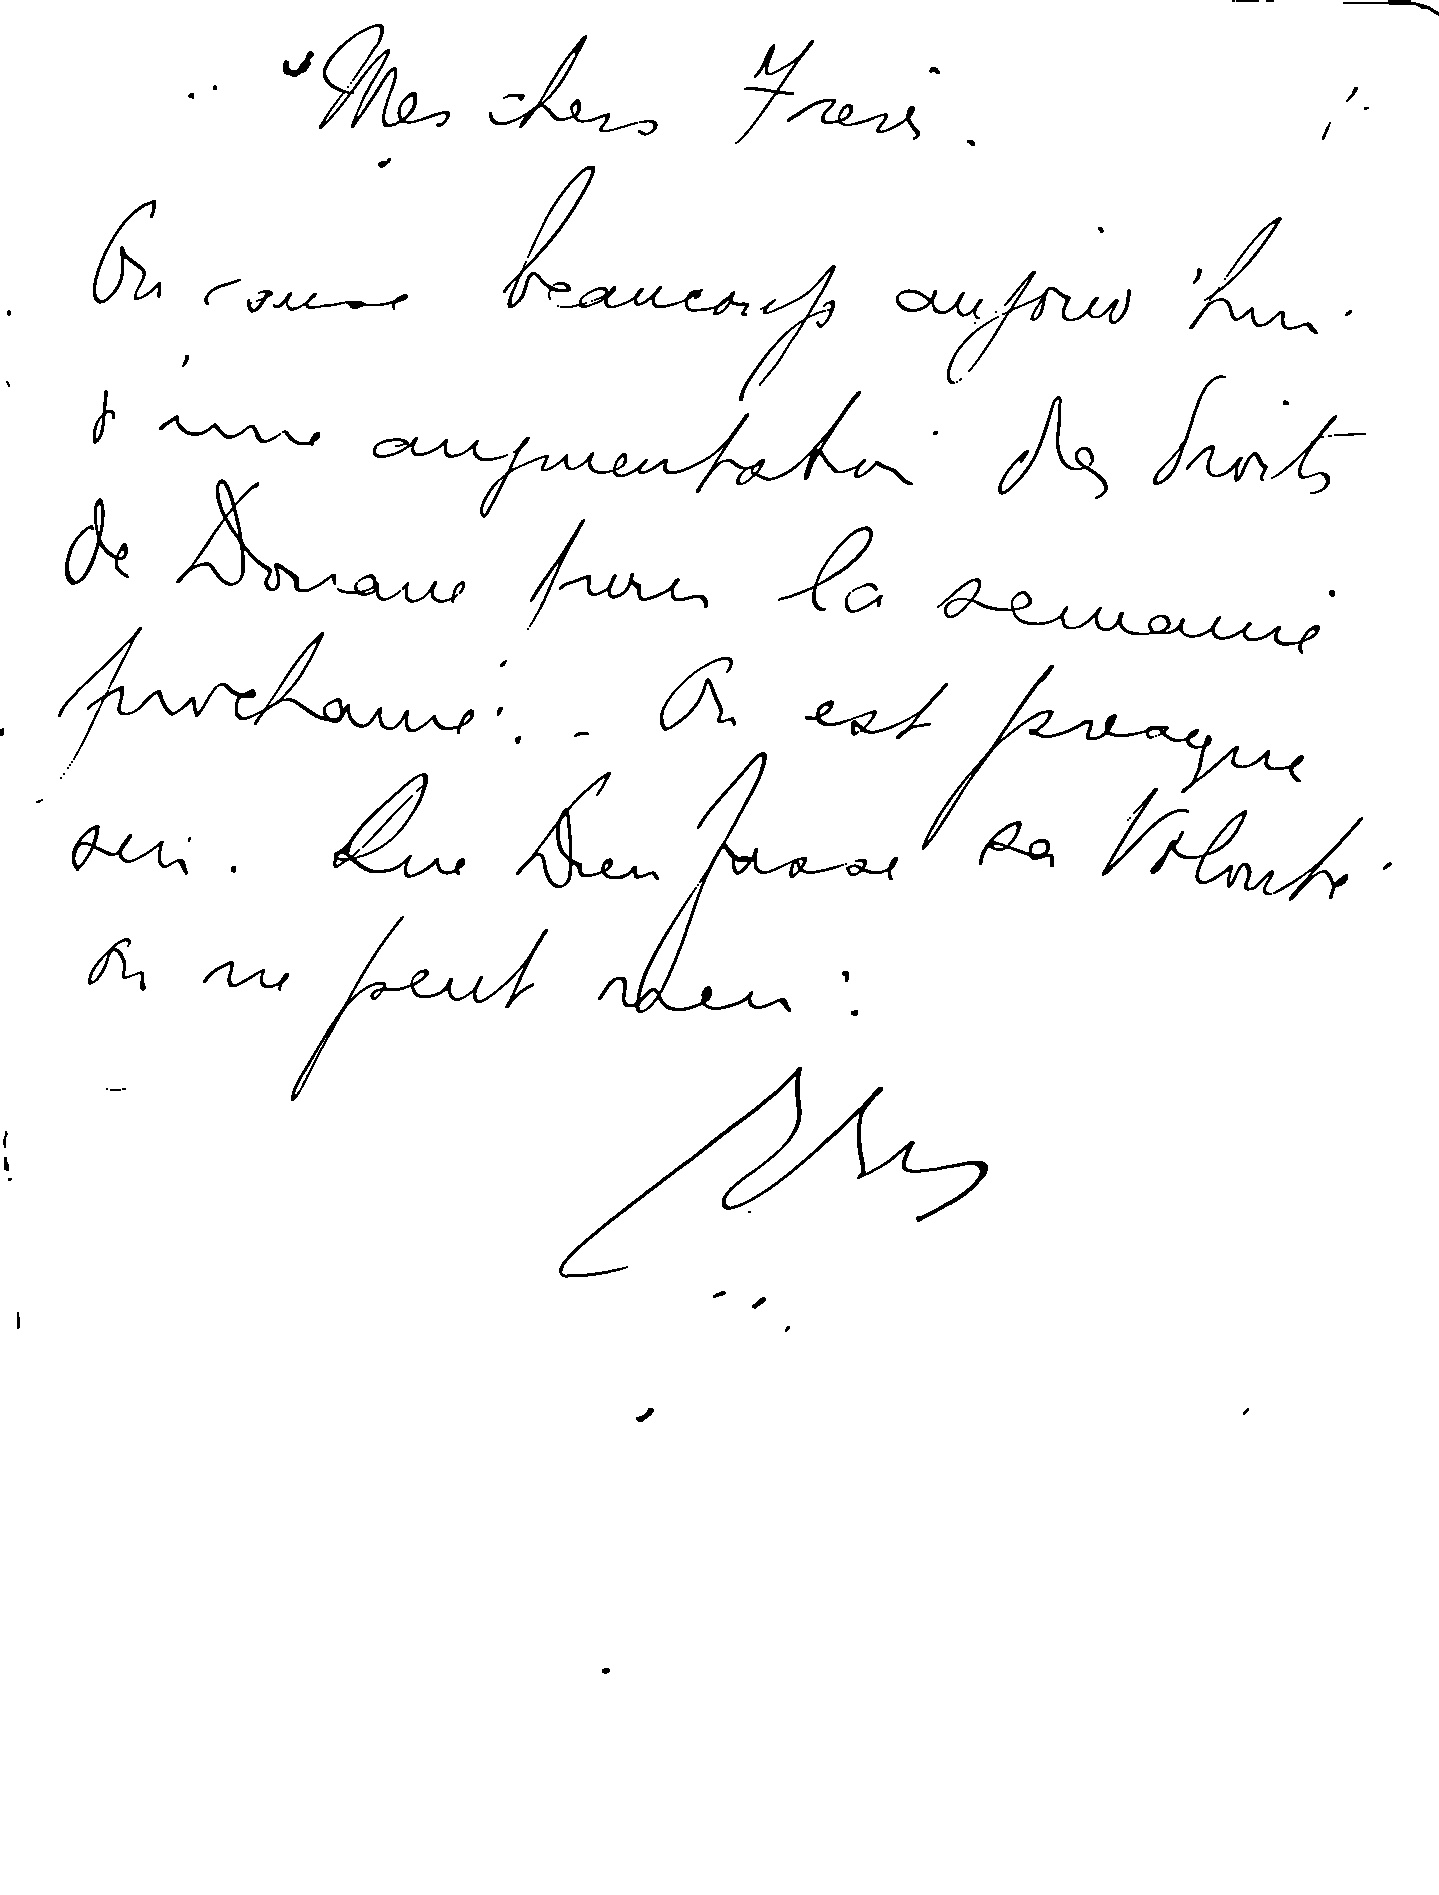 Mes chers Freres.
On cause beaucoup aujourd'hui
d'une augmentation des droits
de Douane pour la semaine
prochaine. - On est presque
sur. Que Dieu fasse sa Volonté
on ne peut rien.